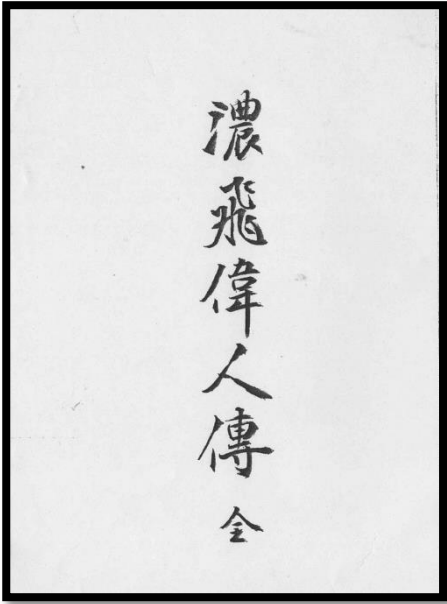 濃飛偉人傳 全